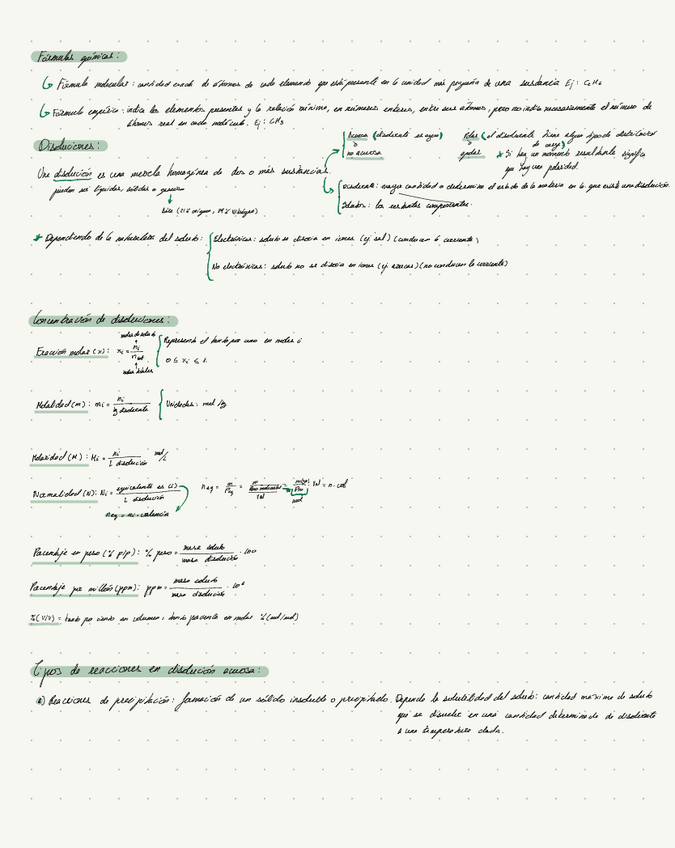 Fórmulas químicas:
Fórmula molecular: cantidad exacta de átomos de cada elemento que está presente en la unidad más pequeña de una sustancia Ej: C₂H₆
Fórmula empírica: indica los elementos presentes y la relación mínima, en números enteros, entre sus átomos, pero no indica necesariamente el número de
átomos real en cada molécula. Ej: CH₃
Disoluciones:
Acuosa (disolvente es agua)
no acuosa
Polar (el disolvente tiene algún tipo de distribución
de carga)
apolar
* Si hay un momento resultante significa
que hay una polaridad.
Una disolución es una mezcla homogénea de dos o más sustancias
pueden ser líquidas, sólidas o gaseosas
Disolvente: mayor cantidad o determina el estado de la materia en la que existe una disolución
Solutos: los restantes componentes.
* Dependiendo de la naturaleza del soluto:
Electrolitos: soluto se disocia en iones (ej. sal) (conducen la corriente)
No electrolitos: soluto no se disocia en iones (ej. azúcar) (no conducen la corriente)
Concentración de disoluciones:
moles de soluto
Fracción molar (x): xᵢ = nᵢ / n total
moles totales
Representa el tanto por uno en moles i
0 ≤ xᵢ ≤ 1.
Molalidad (m): mᵢ = nᵢ / kg disolvente
Unidades: mol/kg
Molaridad (M): Mᵢ = nᵢ / L disolución mol/L
Normalidad (N): Nᵢ = equivalente es (i) / L disolución
neq = nᵢ · valencia
Porcentaje en peso (% p/p): % peso = masa soluto / masa disolución · 100
Porcentaje por millón (ppm): ppm = masa soluto / masa disolución · 10⁶
%(V/V) = tanto por ciento en volumen = tanto por ciento en moles %(mol/mol)
Tipos de reacciones en disolución acuosa:
a) Reacciones de precipitación: formación de un sólido insoluble o precipitado. Depende la solubilidad del soluto: cantidad máxima de soluto
que se disuelve en una cantidad determinada de disolvente
a una temperatura dada.